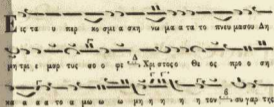 Εις τα υ περ κο σμι α σκη νω μα α τα το πνευ μα σου Δη
μη τρι ε μαρ τυς σο ο φε Χρι στος ο Θε ος προ ο ση
κα α α α το α μω ω ω μη η η η τον συ γαρ τη